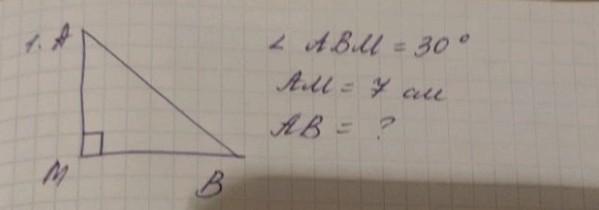 1. A
∠ ABM = 30°
AM = 7 см
AB = ?
M
B